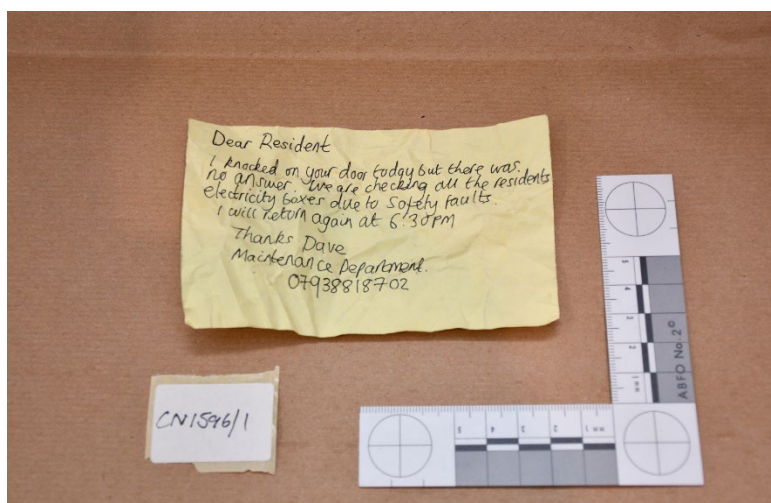 Dear Resident
I knocked on your door today but there was
no answer. We are checking all the residents
electricity boxes due to safety faults.
I will return again at 6:30pm
Thanks Dave
Maintenance Department.
07938818702
CN1596/1
ABFO No. 2©